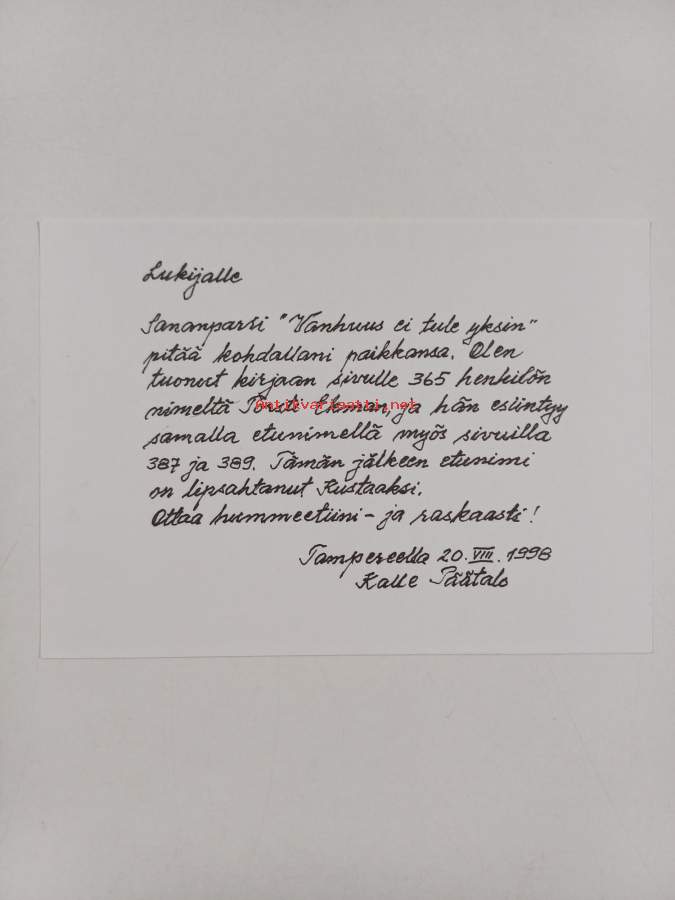 Lukijalle
Sananparsi "Vanhuus ei tule yksin"
pitää kohdallani paikkansa. Olen
tuonut kirjaan sivulle 365 henkilön
nimeltä Ekman, ja hän esiintyy
Antikvariaatti.net
samalla etunimellä myös sivuilla
387 ja 389. Tämän jälkeen etunimi
on lipsahtanut Kustaaksi.
Ottaa hummeetiini – ja raskaasti!
Tampereella 20.VIII.1998
Kalle Päätalo